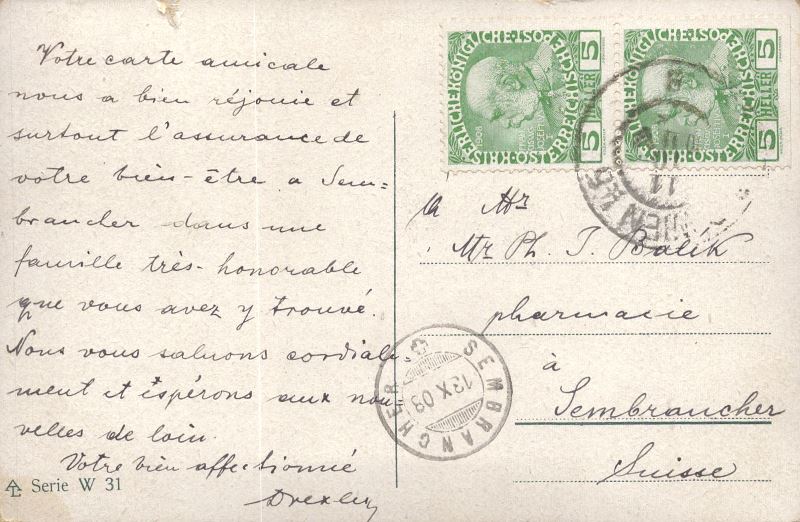 Votre carte amicale
nous a bien réjouie et
surtout l'assurance de
votre bien-être a Sem-
brancher dans une
famille très-honorable
que vous avez y trouvé.
Nous vous saluons cordiale-
ment et éspérons aux nou-
velles de loin.
Votre bien affectionné
Drexler
Serie W 31
KAISERLICHE KÖNIGLICHE ÖSTERREICHISCHE POST
5 HELLER 5
1908
KAISERLICHE KÖNIGLICHE ÖSTERREICHISCHE POST
5 HELLER 5
WIEN
11
à Mr
Mr Ph. J. Balik
pharmacie
à
Sembrancher
Suisse
SEMBRANCHER
13 X 08